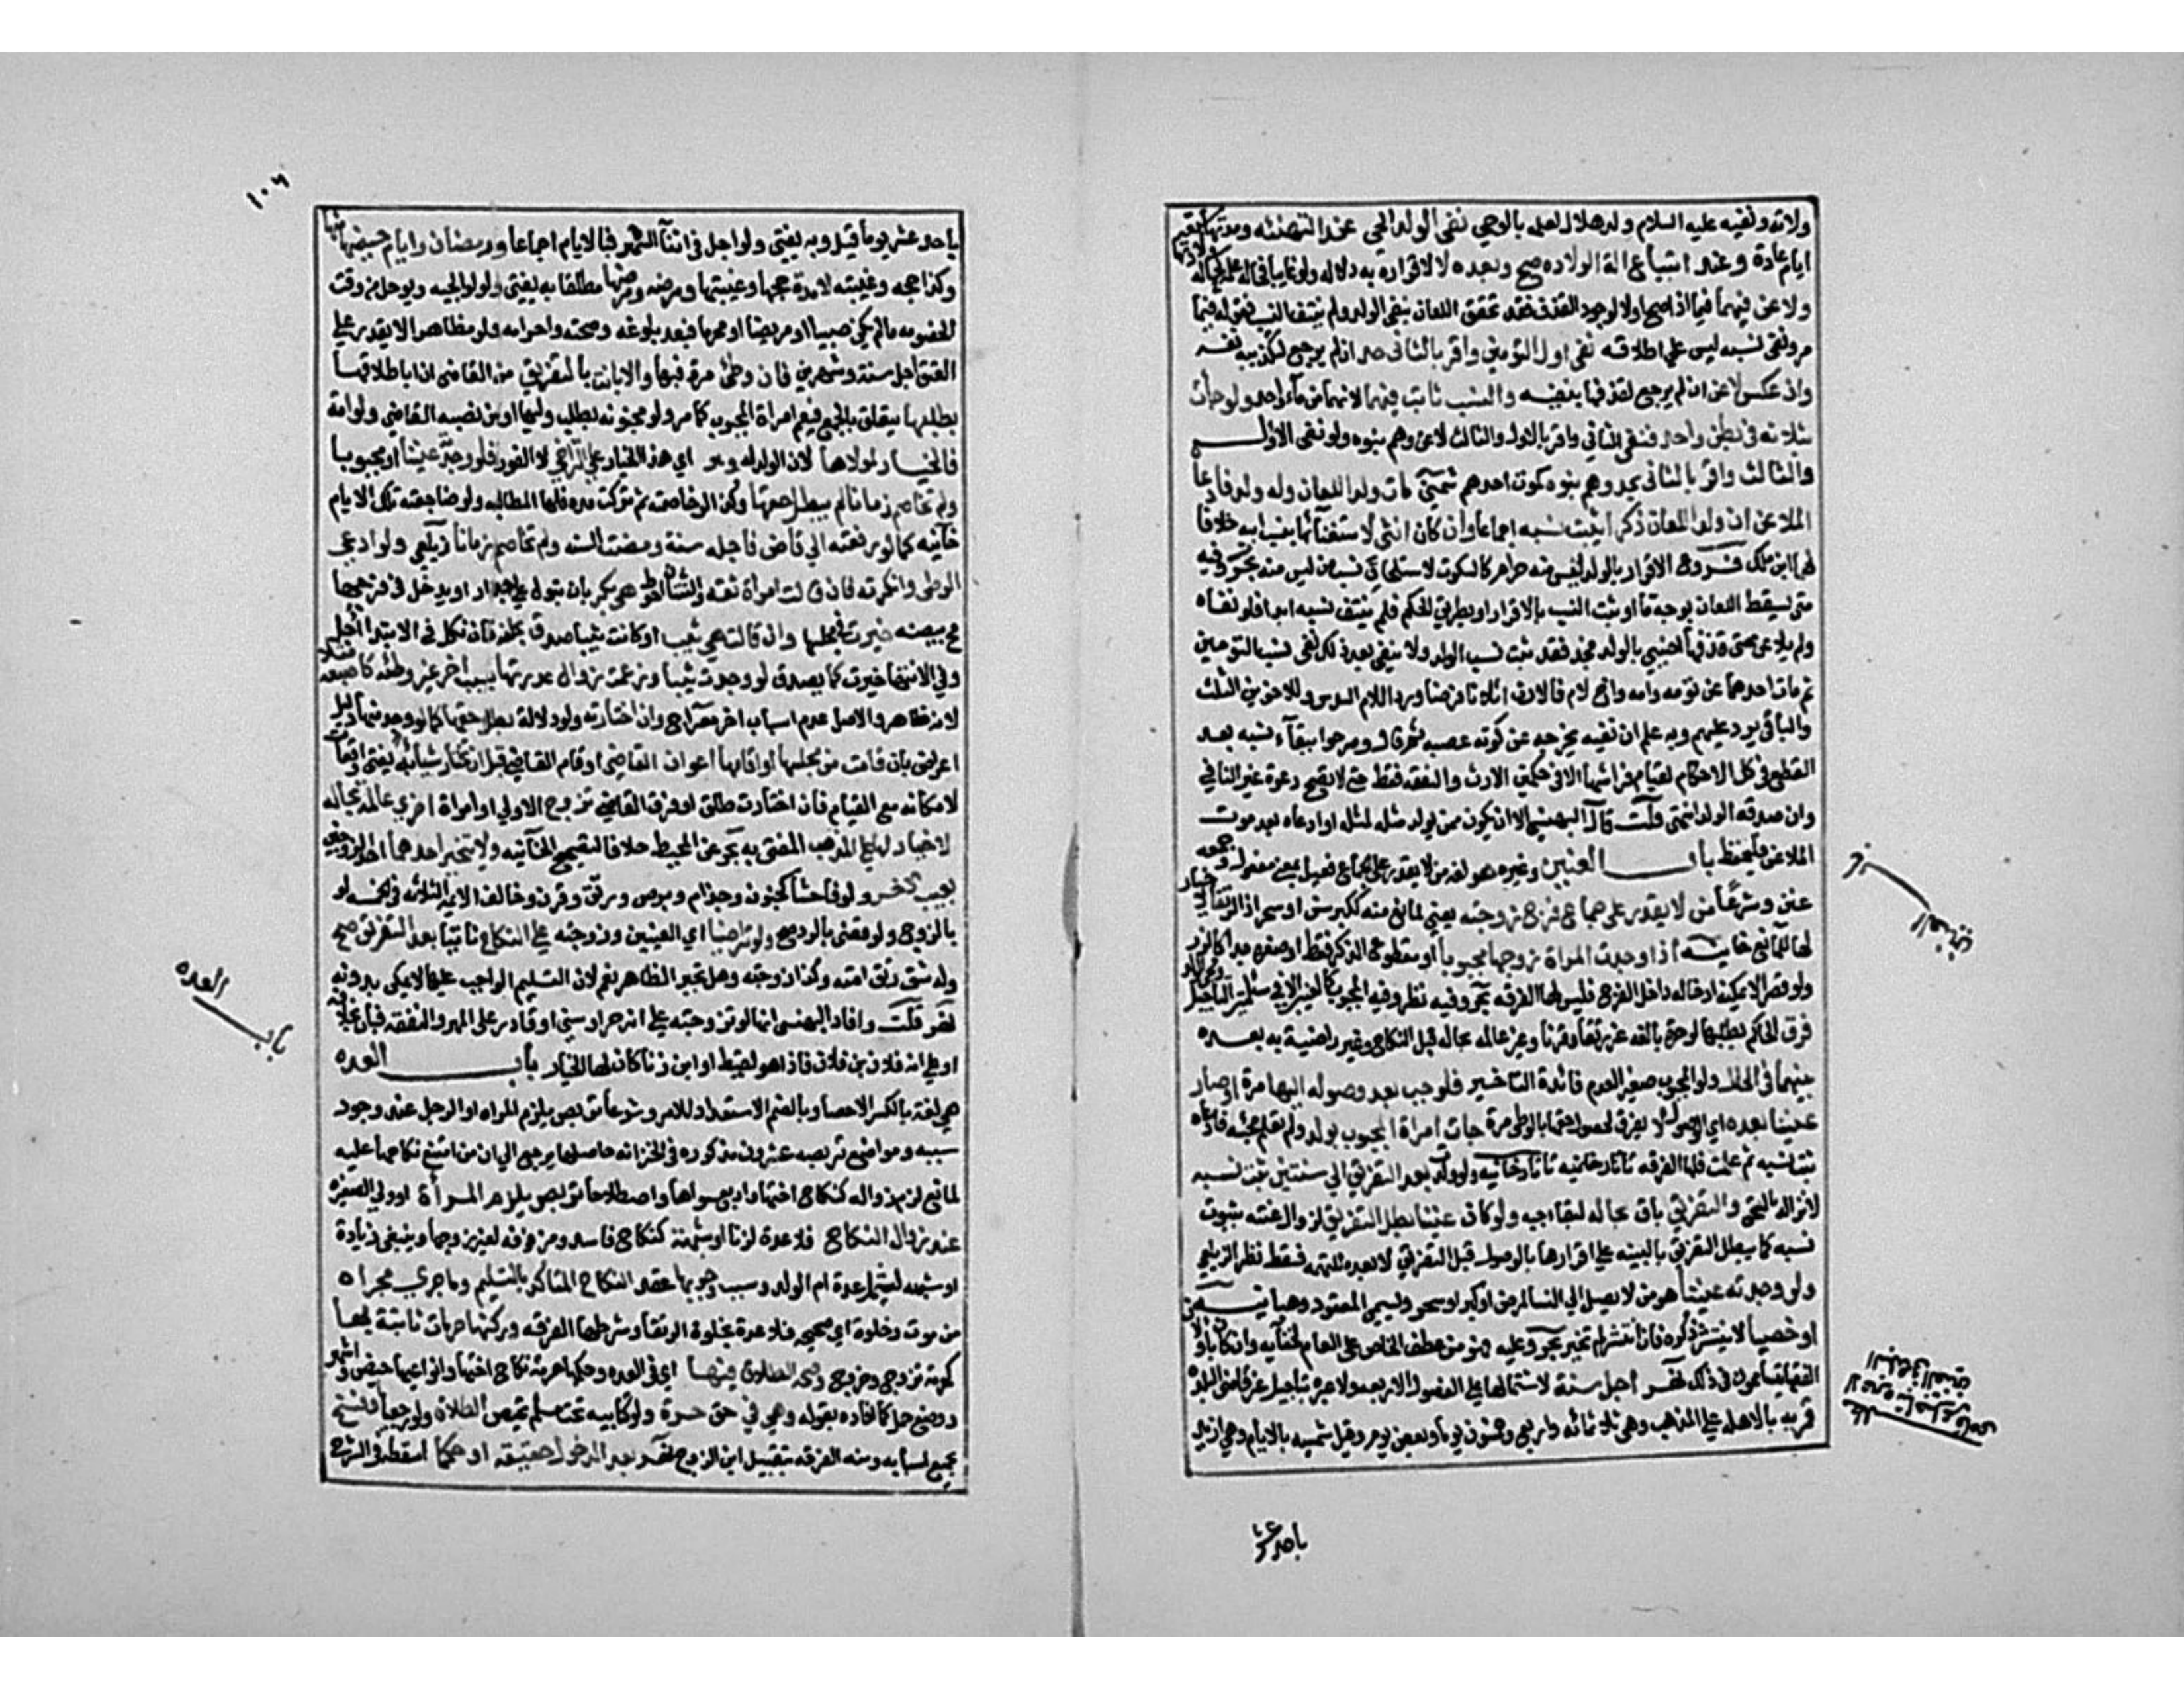 ولاته ونفيه عليه السلام ولد هلال لعلمه بالوحي نفى الولد الحي عند التهنئه ومدتها
ايام عادة وعند ابتياع الة الولاده صح وبعده لا لاقراره به دلاله ولو غايبا
ولاعن فيهما فيما اذا صح اولا لوجود القذف فقد تحقق اللعان بنفي الولد ولم ينتف النسب
ونفى نسبه ليس على اطلاقه نفى اول التومين واقر بالثاني حد ان لم يرجع لتكذيبه نفسه
وان عكس لاعن ان لم يرجع لقذفها بنفيه والنسب ثابت فيهما لانهما من ماء واحد ولو جأت
بثلاثه في بطن واحد فنفى الثاني واقر بالاول والثالث لاعن وهم بنوه ولو نفى الاول
والثالث واقر بالثاني يحد وهم بنوه كموت احدهم مات ولد اللعان وله ولد فادعا
الملاعن ان ولد اللعان ذكر ايثبت نسبه اجماعا وان كان انثى لا لاستغنائها بنسب ابيه خلافا
لهما ابن ملك فروع الاقرار بالولد ليس منه حرام كالسكوت لاستلحاق نسب من ليس منه بحر وفيه
متى سقط اللعان بوجه ما او ثبت النسب بالاقرار او بطريق الحكم لم ينتف نسبه ابدا فلو نفاه
ولم يلاعن حتى قذفها اجنبي بالولد فحد فقد ثبت نسب الولد ولا ينتفي بعد ذلك نفى نسب التومين
ثم مات احدهما عن تومه وامه واخ لام فالارث اثلاثا فرضا وردا للام السدس وللاخوين الثلث
والباقي يرد عليهم وبه علم ان نفيه يخرجه عن كونه عصبه وصرحوا ببقاء نسبه بعد
القطع في كل الاحكام لقيام فراشها الا في حكمين الارث والنفقه فقط حتى لا تصح دعوة غير النافي
وان صدقه الولد انتهى قلت قال البهنسي الا ان يكون ممن يولد مثله لمثله او ادعاه بعد موت
الملاعن فليحفظ باب العنين وغيره هو لغة من لا يقدر على الجماع فعيل بمعنى مفعول وجمعه
عنن وشرعا من لا يقدر على جماع فرج زوجته يعني لمانع منه ككبر سن او سحر
لها للمانع خانيه اذا وجدت المراة زوجها مجبوبا او مقطوع الذكر فقط او صغيره جدا كالزر
ولو قصيرا لا يمكنه ادخاله داخل الفرج فليس لها الفرقه بحر وفيه نظر وفيه المجبوب كالعنين الا في مسئلتين التاجيل
فرق الحاكم بطلبها لو حرة بالغه غير رتقا وقرنا وغير عالمه بحاله قبل النكاح وغير راضية به بعده
بينهما في الحال ولو المجبوب صغيرا لعدم فائدة التاخير فلو جب بعد وصوله اليها مرة او صار
عنينا بعده اي الوصول لا يفرق لحصول حقها بالوطئ مرة جات امراة المجبوب بولد ولم تعلم بجبه فادعاه
ثبت نسبه ثم علمت فلها الفرقه تاتارخانيه ولو ولدت بعد التفريق الى سنتين ثبت نسبه
لانزاله بالسحق والتفريق باق بحاله لبقاء جبه ولو كان عنينا بطل التفريق لزوال عنته بثبوت
نسبه كما يبطل التفريق بالبينه على اقرارها بالوصول قبل التفريق لا بعده للتهمه فسقط نظر الزيلعي
ولو وجدته عنينا هو من لا يصل الى النسا لمرض او كبر او سحر ويسمى المعقود
او خصيا لا ينتشر ذكره فان انتشر لم تخير بحر وعليه فهو من عطف الخاص على العام
في ذلك اجل سنة لاشتمالها على الفصول الاربعه ولا عبرة بتاجيل غير قاضي البلده
قمرية بالاهله على المذهب وهي ثلاثمائه واربع وخمسون يوما وبعض يوم وقيل شمسيه بالايام وهي ازيد
باحد عشر
زوجها
العنين
باب
١٠٦
باحد عشر يوما قيل وبه يفتى ولو اجل في اثنا الشهر فبالايام اجماعا ورمضان وايام حيضها منها
وكذا حجه وغيبته لا مدة حجها وغيبتها ومرضه ومرضها مطلقا به يفتى ولولوالجيه ويوجل من وقت
الخصومه ما لم يكن صبيا او مريضا او محرما فبعد بلوغه وصحته واحرامه ولو مظاهرا لا يقدر على
العتق اجل سنة وشهرين فان وطئ مرة فبها والا بانت بالتفريق من القاضي ان ابا طلاقها
بطلبها يتعلق بالجميع فيعم امراة المجبوب كما مر ولو مجنونه بطلب وليها او من نصبه القاضي ولو امة
فالخيار لمولاها لان الولد له وهو اي هذا الخيار على التراخي لا الفور فلو وجدته عنينا او مجبوبا
ولم تخاصم زمانا لم يبطل حقها وكذا لو خاصمته ثم تركت مده فلها المطالبه ولو ضاجعته تلك الايام
خانيه كما لو رفعته الي قاض فاجله سنة ومضت السنه ولم تخاصم زمانا زيلعي ولو ادعى
الوطئ وانكرته فان قالت امراة ثقه والثنتان احوط هي بكر بان تبول على جدار او يدخل في فرجها
مح بيضه خيرت في مجلسها وان قالت هي ثيب او كانت ثيبا صدق بحلفه فان نكل في الابتدا اجل
وفي الانتها خيرت كما يصدق لو وجدت ثيبا وزعمت زوال عذرتها بسبب اخر غير وطئه كاصبعه
لانه ظاهر والاصل عدم اسباب اخر معراج وان اختارته ولو دلالة بطل حقها كما لو وجد منها دليل
اعراض بان قامت من مجلسها او اقامها اعوان القاضي او قام القاضي قبل ان تختار شيا به يفتى واقعات
لامكانه مع القيام فان اختارت طلق او فرق القاضي تزوج الاولى او امراة اخرى عالمة بحاله
لا خيار لها على المذهب المفتى به بحر عن المحيط خلافا لتصحيح الخانيه ولا يتخير احدهما اي الزوجين
بعيب الاخر ولو فاحشا كجنون وجذام وبرص ورتق وقرن وخالف الايمة الثلاثه في الخمسه لو
بالزوج ولو قضى بالرد صح ولو تراضيا اي العنين وزوجته على النكاح ثانيا بعد التفريق صح
وله شق رتق امته وكذا زوجته وهل تجبر الظاهر نعم لان التسليم الواجب عليها لا يمكن بدونه
نهر قلت وافاد البهنسي انها لو تزوجته على انه حر او سني او قادر على المهر والنفقه فبان بخلافه
او على انه فلان بن فلان فاذا هو لقيط او ابن زنا كان لها الخيار باب العده
هي لغة بالكسر الاحصا وبالضم الاستعداد للامر وشرعا تربص يلزم المراه او الرجل عند وجود
سببه ومواضع تربصه عشرون مذكوره في الخزانه حاصلها يرجع الي ان من امتنع نكاحها عليه
لمانع لا بد من زواله كنكاح اختها واربع سواها واصطلاحا تربص يلزم المرأة او ولي الصغيره
عند زوال النكاح فلا عدة لزنا او شبهته كنكاح فاسد ومزفوفه لغير زوجها وينبغي زيادة
او شبهه ليشمل عدة ام الولد وسبب وجوبها عقد النكاح المتاكد بالتسليم وما جرى مجراه
من موت وخلوة اي صحيحه فلا عدة بخلوة الرتقا وشرطها الفرقه وركنها حرمات ثابتة بها
كحرمة تزوج وخروج وصحة الطلاق فيها اي في العده وحكمها حرمة نكاح اختها وانواعها حيض واشهر
ووضع حمل كما افاده بقوله وهي في حق حرة ولو كتابيه تحت مسلم تحيض لطلاق ولو رجعيا او فسخ
بجميع اسبابه ومنه الفرقه بتقبيل ابن الزوج نهر بعد الدخول حقيقة او حكما اسقطه في الشرح
باب
العده